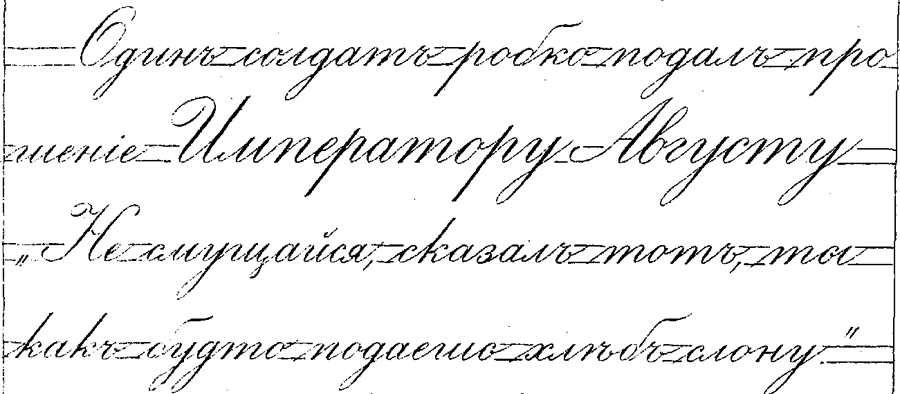 Одинъ солдатъ робко подалъ про
шеніе Императору Августу
„Не смущайся, сказалъ тотъ, ты
какъ будто подаешь хлѣбъ слону"